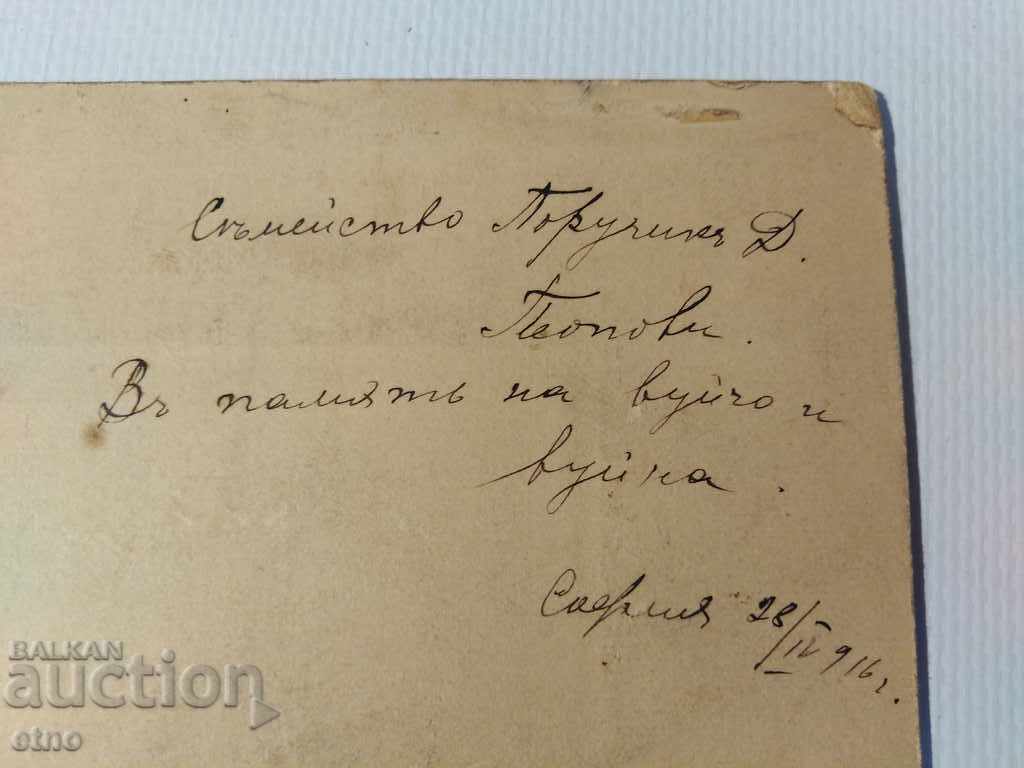 Съмейство Поручикъ Д.
Попови.
Въ память на вуйчо и
вуйна.
София 28/IV 916 г.
BALKAN
auction
etno